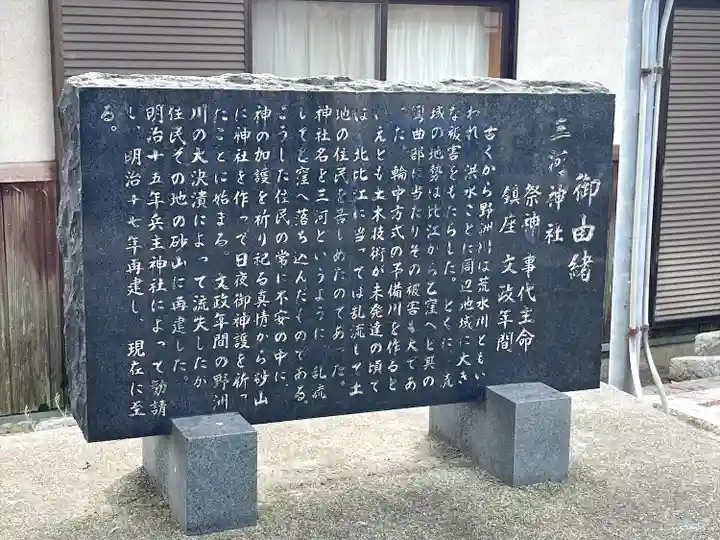 御由緒
三河神社
祭神 事代主命
鎮座 文政年間
古くから野洲川は荒水川ともい
われ、洪水ごとに周辺地域に大き
な被害をもたらした。とくに虎
域の地勢は比江から乙窪へと其の
弯曲部に当たりその被害も大であ
った。輪中方式の予備川を作ると
いえども土木技術が未発達の頃て
は、北比江に当っては乱流して土
地の住民を苦しめたのであった。
神社名を三河というように、乱流
して乙窪へ落ち込んだものである。
こうした住民の常に不安の中に、
神の加護を祈り祀る真情から砂山
に神社を作って日夜御神護を祈っ
たことに始まる。文政年間の野洲
川の大決潰によって流失したが
住民その地の砂山に再建した。
明治十五年兵主神社によって勧請
し、明治十七年再建し、現在に至
る。